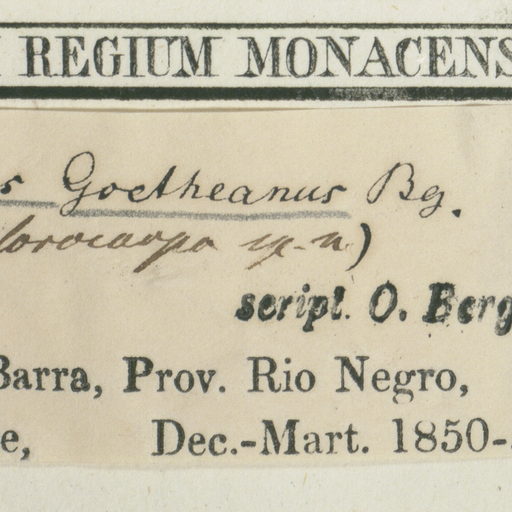 REGIUM MONACENS
s Goetheanus Bg.
script. O. Berg
Barra, Prov. Rio Negro,
e, Dec.-Mart. 1850-